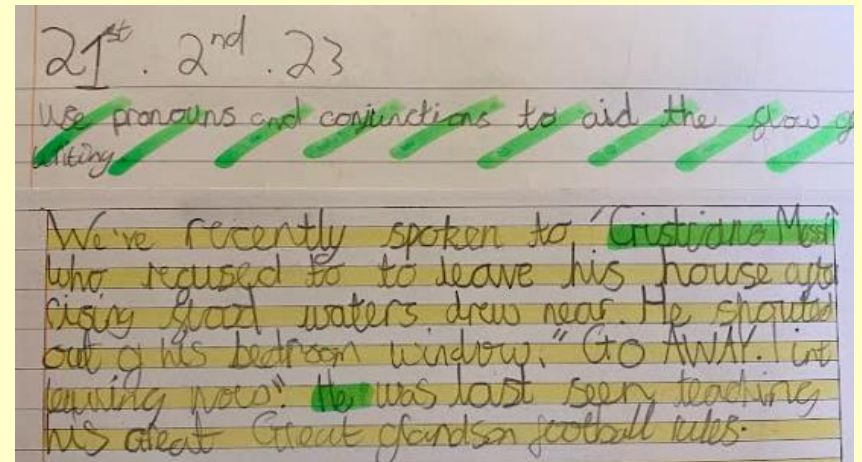 21st. 2nd. 23
Use pronouns and conjunctions to aid the flow of
writing.
We've recently spoken to "Cristiano Messi"
who refused to to leave his house after
rising flood waters drew near. He shouted
out of his bedroom window," GO AWAY. I int
leaving now". He was last seen teaching
his Great Great grandson football rules.